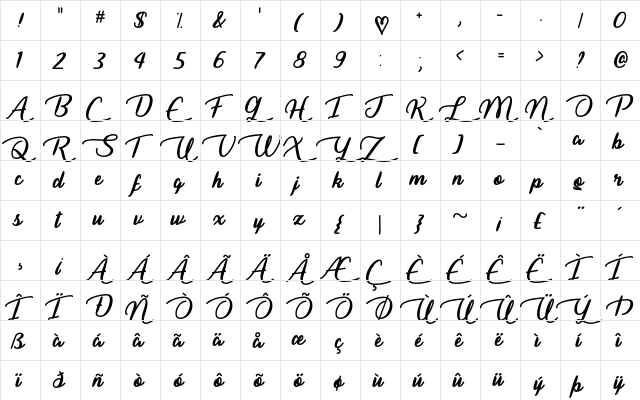 ! " # $ % & ' ( ) ♡ + , - . / 0
1 2 3 4 5 6 7 8 9 : ; < = > ? @
A B C D E F G H I J K L M N O P
Q R S T U V W X Y Z [ ] _ ` a b
c d e f g h i j k l m n o p q r
s t u v w x y z { | } ~ ¡ £ ¨ ´
¸ i À Á Â Ã Ä Å Æ Ç È É Ê Ë Ì Í
Î Ï Ð Ñ Ò Ó Ô Õ Ö Ø Ù Ú Û Ü Ý Þ
ß à á â ã ä å æ ç è é ê ë ì í î
ï ð ñ ò ó ô õ ö ø ù ú û ü ý þ ÿ